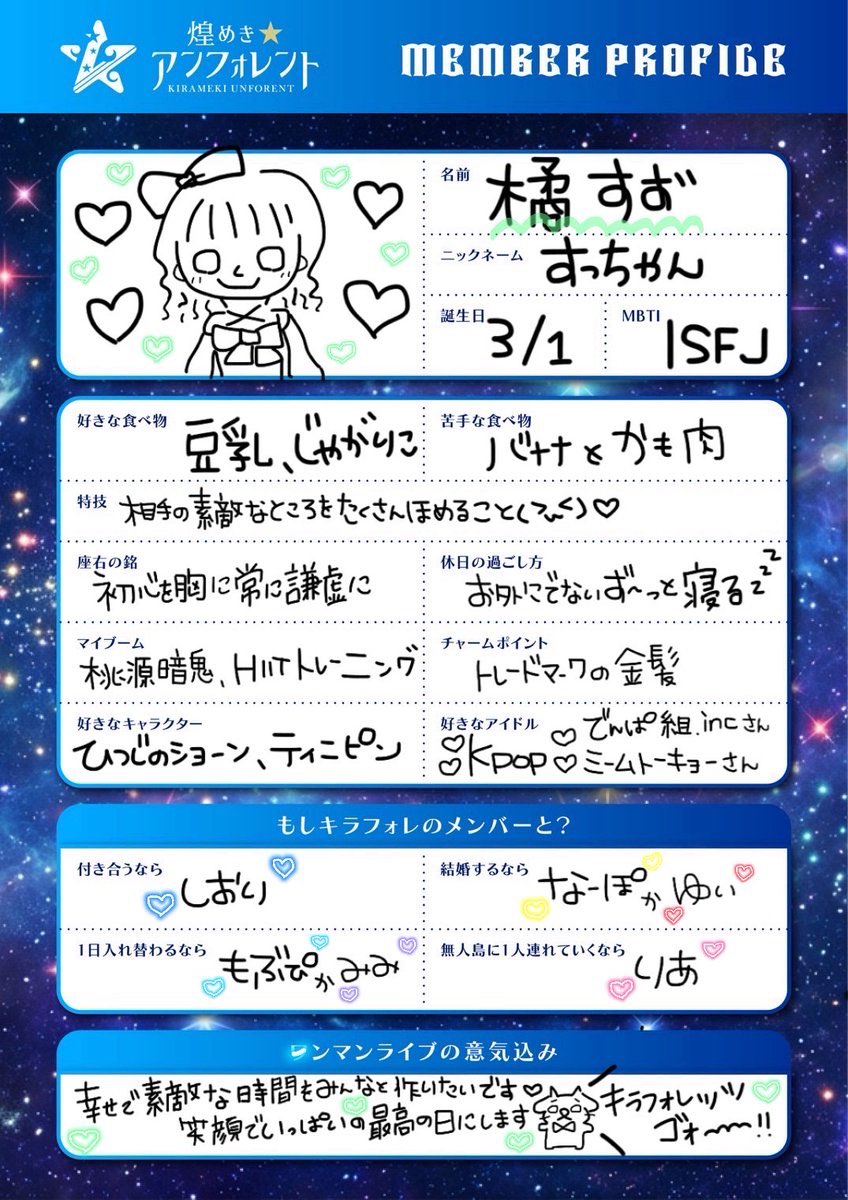 煌めき★
アンフォレント
KIRAMEKI UNFORENT
MEMBER PROFILE
名前
橘すず
ニックネーム
すっちゃん
誕生日
3/1
MBTI
ISFJ
好きな食べ物
豆乳、じゃがりこ
苦手な食べ物
バナナとかも肉
特技
相手の素敵なところをたくさんほめること(っ﹏<)♡
座右の銘
初心を胸に常に謙虚に
休日の過ごし方
お外にでないず〜っと寝るzzz
マイブーム
桃源暗鬼、HIITトレーニング
チャームポイント
トレードマークの金髪
好きなキャラクター
ひつじのショーン、ティニピン
好きなアイドル
でんぱ組.incさん
♡KPOP♡ミームトーキョーさん
もしキラフォレのメンバーと?
付き合うなら
しおり
結婚するなら
なーぽかゆい
1日入れ替わるなら
もぶぴかみみ
無人島に1人連れていくなら
りあ
ンマンライブの意気込み
幸せで素敵な時間をみんなと作りたいです♡
笑顔でいっぱいの最高の日にします
キラフォレッツ
ゴォ〜〜!!